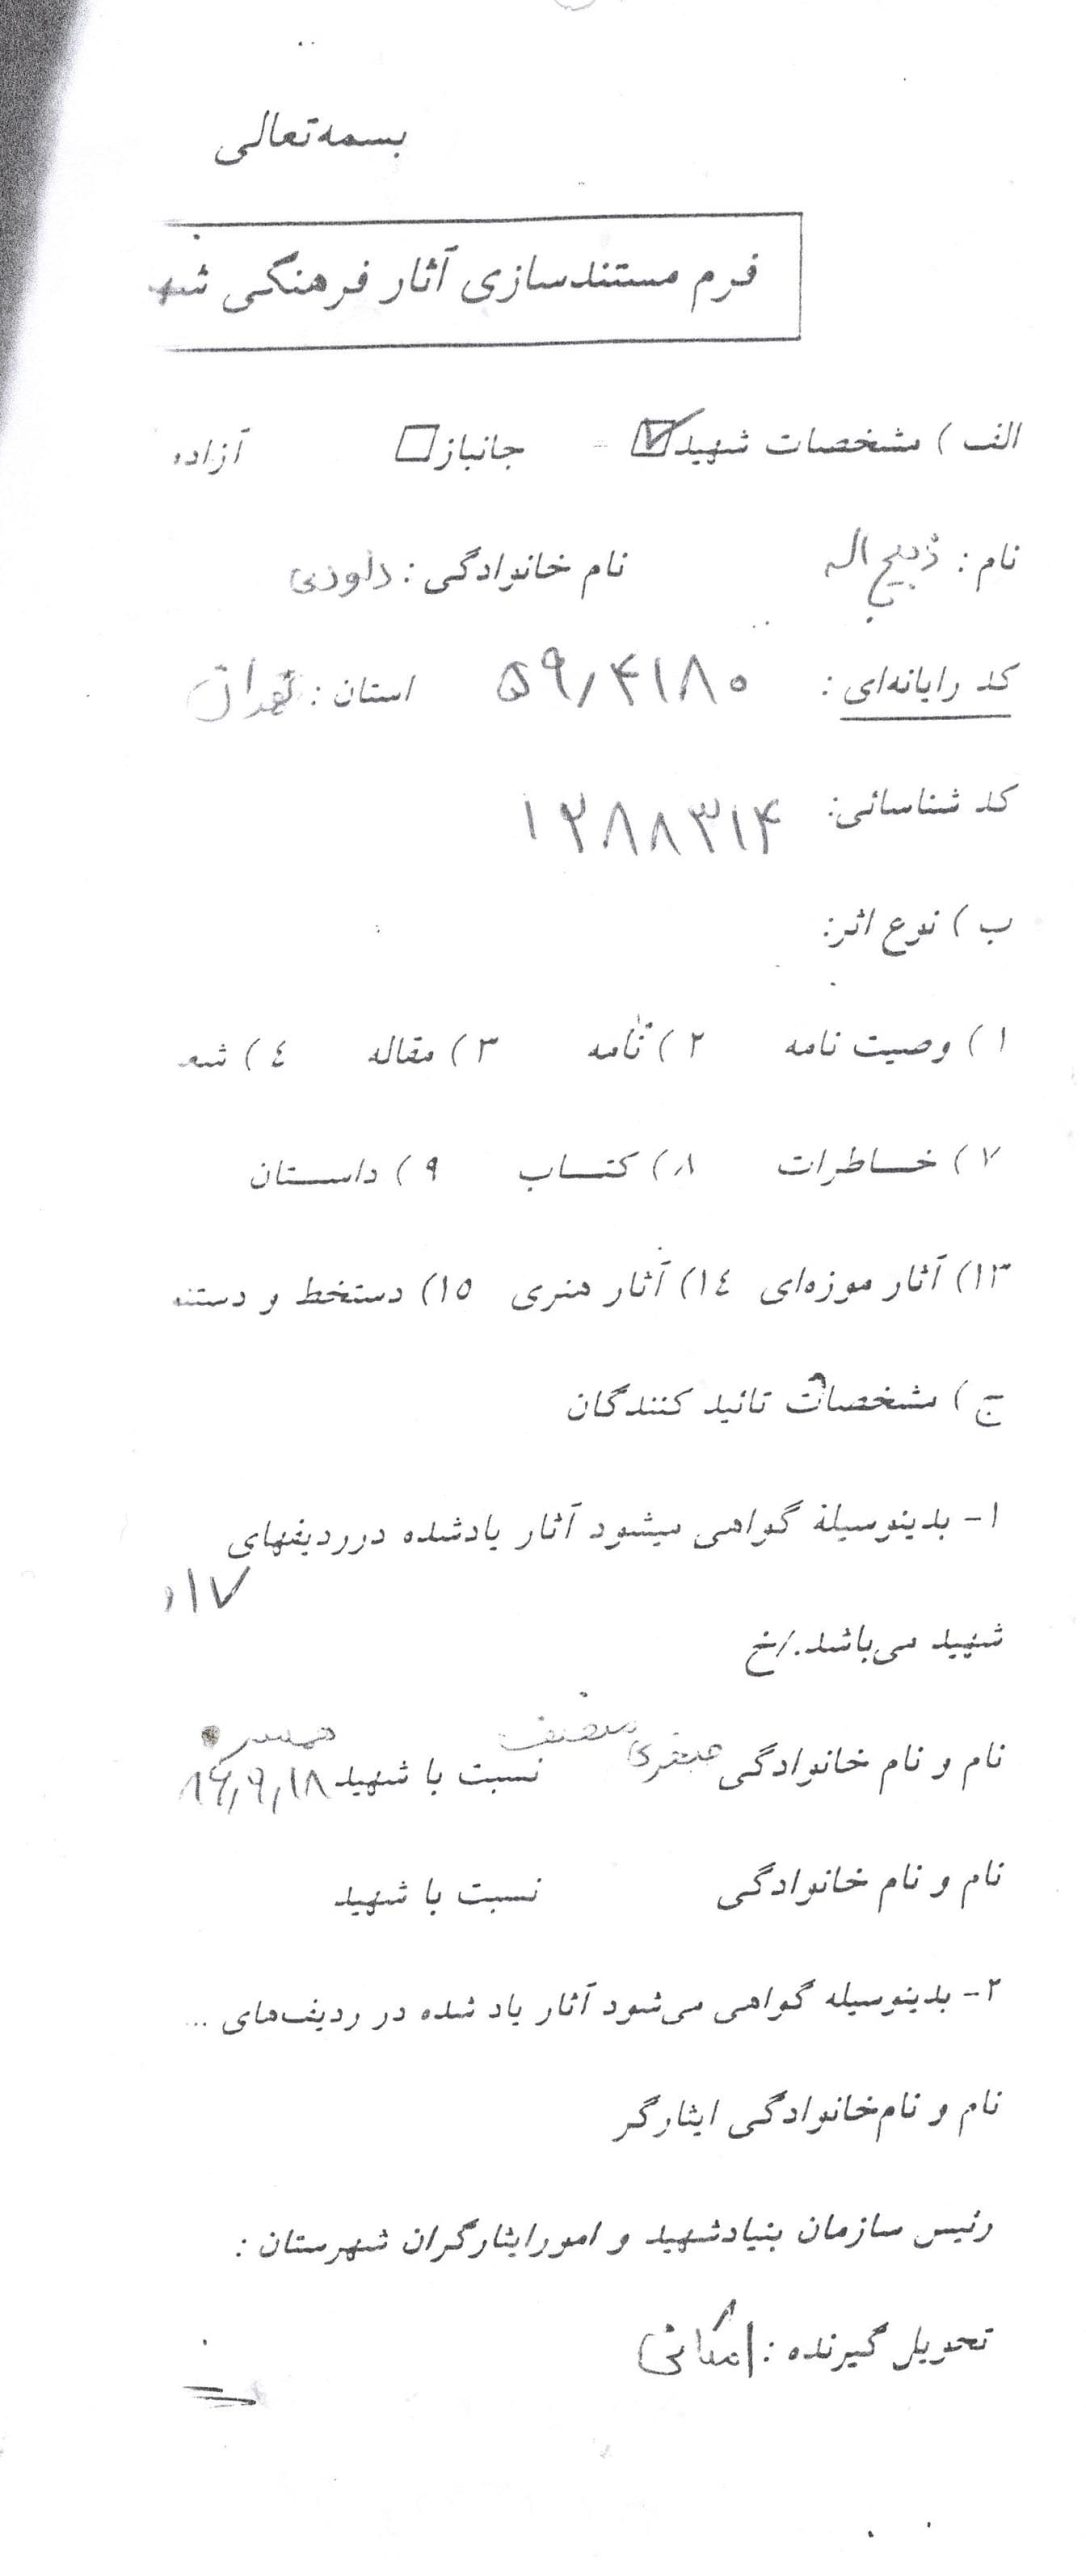 بسمه‌تعالی
فرم مستندسازی آثار فرهنگی شه
الف ) مشخصات شهید ☑ جانباز □ آزاده
نام : ذبیح اله نام خانوادگی : داوری
کد رایانه‌ای : ۵۹/۴۱۸۰ استان : تهران
کد شناسائی: ۱۲۸۸۳۱۴
ب ) نوع اثر:
۱ ) وصیت نامه ۲ ) نامه ۳ ) مقاله ٤ ) شعـ
۷ ) خــاطرات ۸ ) کتــاب ۹ ) داستــان
۱۳) آثار موزه‌ای ۱٤) آثار هنری ۱۵) دستخط و دستنـ
ج ) مشخصات تائید کنندگان
۱- بدینوسیلة گواهی میشود آثار یادشده درردیفهای
۱۷و
شهید می‌باشد./خ
نام و نام خانوادگی نسبت با شهید همسر
۸۶,۹,۱۸
نام و نام خانوادگی نسبت با شهید
۲- بدینوسیله گواهی می‌شود آثار یاد شده در ردیف‌های ...
نام و نام‌خانوادگی ایثارگر
رئیس سازمان بنیادشهید و امورایثارگران شهرستان :
تحویل گیرنده :